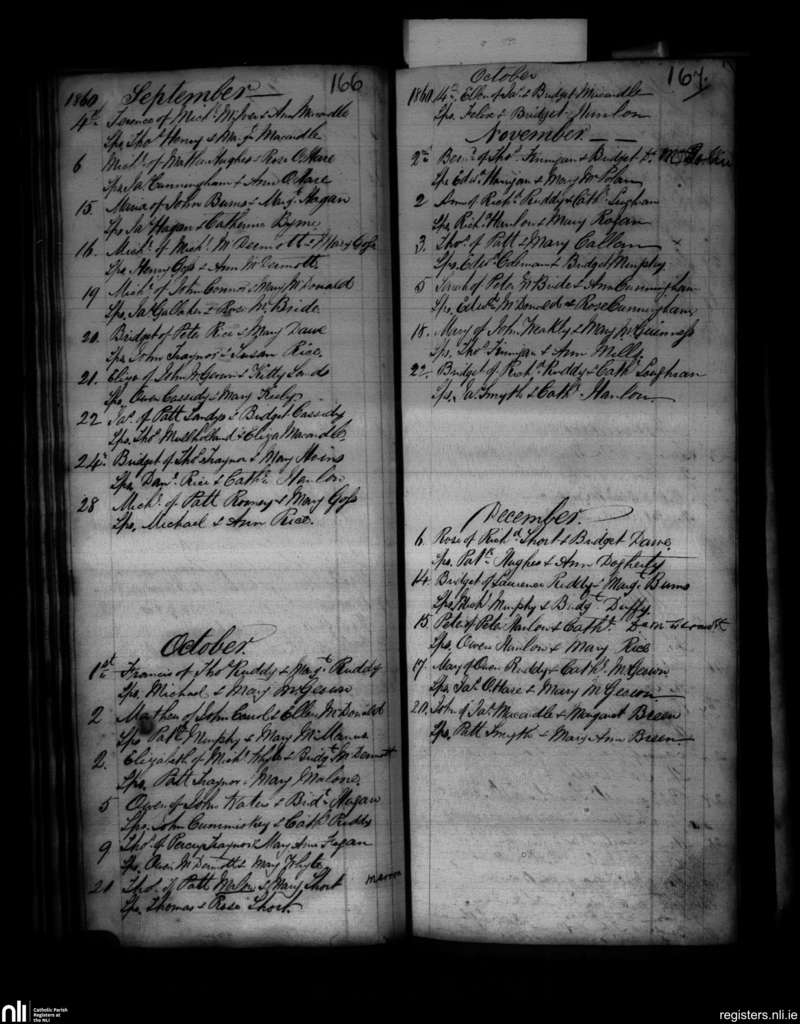 166
1860 September
4th Terence of Michl McIver & Ann Macardle
Sps, Thos Henry & Margt Macardle
6 Michl of Matthew Hughes & Rose O'Hare
Sps Jas Cunningham & Ann O'Hare
15 Maria of John Burns & Margt Hagan
Sps Jas Hagan & Catherine Byrne
16. Michl of Michl McDermott & Mary Goss
Sps, Henry Goss & Ann McDermott
19 Michl of John Connor & Mary McDonald
Sps, Jas & Rose McBride
20 Bridget of Peter Rice & Mary Dawe
Sps John Traynor & Susan Rice.
21. Eliza of John McGeown & Kitty Sands
Sps, Owen Cassidy & Mary Keely
22 Jas of Patt Sands & Bridget Cassidy
Sps, Thos Mullholland & Eliza Macardle.
24th Bridget of Thos Traynor & Mary
Sps Danl Rice & Cathn Hanlon
28 Michl of Patt Rooney & Mary Goss
Sps, Michael & Ann Rice.
October
1st Francis of Thos Ruddy & Margt Ruddy
Sps, Michael & Mary McGeown
2 Mathew of John Carol & Ellen McDonald
Sps, Patk Murphy & Mary McManus
2. Elizabeth of Michl Whyte & Bridgt McDermott
Sps, Patt Traynor & Mary Malone.
5 Owen of John Waters & Bidt Hagan
Sps. John Cummiskey & Cath Ruddy
9 Thos of Percy Traynor & Mary Ann Fegan
Sps, Owen McDermott & Mary Whyte
21 Thos of Patt & Mary Short
Sps, Thomas & Rose Short.
167.
October
1860 14th Ellen of Jas & Bridget Macardle
Sps, Felix & Bridget Hanlon
November
2nd Bernd of Thos Finnegan & Bridget
Sps Edwd Hanjan & Mary McPolan
2 Ann of Richd Ruddy & Cath Loughran
Sps Richd Hanlon & Mary Rogan
3. Thos of Patt & Mary Callan
Sps, Edwd Coleman & Bridget Murphy
5 Sarah of Peter McBride & Ann Cunningham
Sps, Edwd McDonald & Rose Cunningham
18. Mary of John Weakly & Mary McGuinness
Sps, Thos Finnigan & Ann
22 Bridget of Richd Ruddy & Cath Loughran
Sps, Jas Smyth & Cath Hanlon
December.
6 Rose of Richd Short & Bridget Dawe
Sps, Patk Hughes & Ann Dogherty
14 Bridget of Laurence Ruddy & Margt Burns
Sps Michl Murphy & Bridgt Duffy
15 Peter of Peter Hanlon & Cath
Sps, Owen Hanlon & Mary Rice
17 Mary of Owen Ruddy & Cath McGeown
Sps Jas O'Hare & Mary McGeown
20. John of Jas Macardle & Margaret Breen
Sps, Patt Smyth & Mary Ann Breen
nli Catholic Parish Registers at the NLI
registers.nli.ie